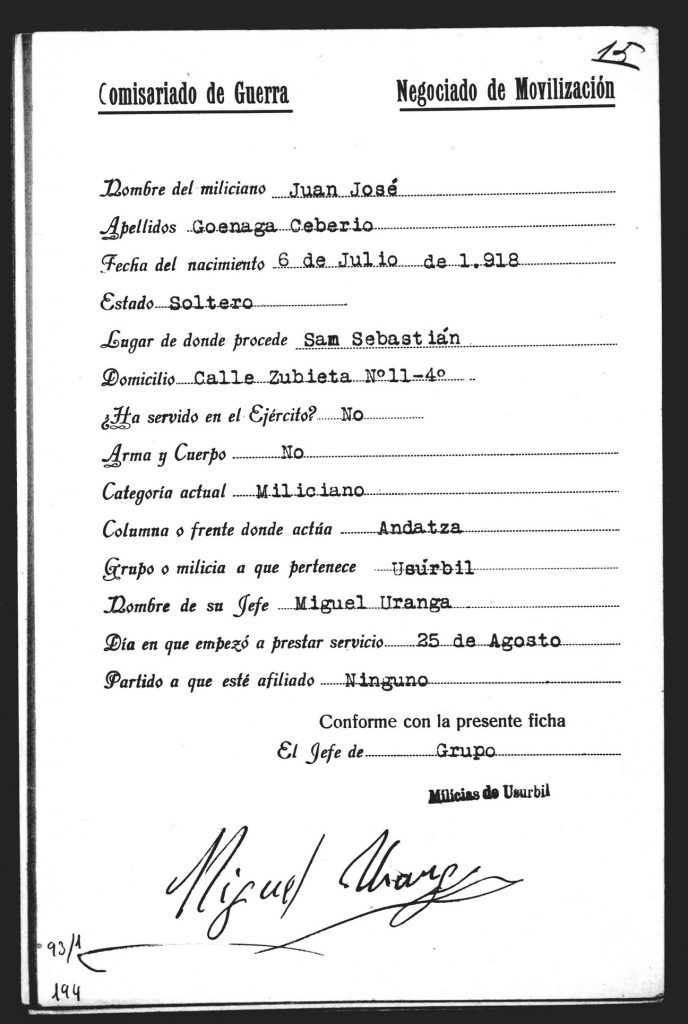 15
Comisariado de Guerra Negociado de Movilización
Nombre del miliciano Juan José
Apellidos Goenaga Ceberio
Fecha del nacimiento 6 de Julio de 1.918
Estado Soltero
Lugar de donde procede San Sebastián
Domicilio Calle Zubieta Nº11-4º
¿Ha servido en el Ejército? No
Arma y Cuerpo No
Categoría actual Miliciano
Columna o frente donde actúa Andatza
Grupo o milicia a que pertenece Usúrbil
Nombre de su Jefe Miguel Uranga
Día en que empezó a prestar servicio 25 de Agosto
Partido a que esté afiliado Ninguno
Conforme con la presente ficha
El Jefe de Grupo
Milicias de Usurbil
Miguel Uranga
93/1
194